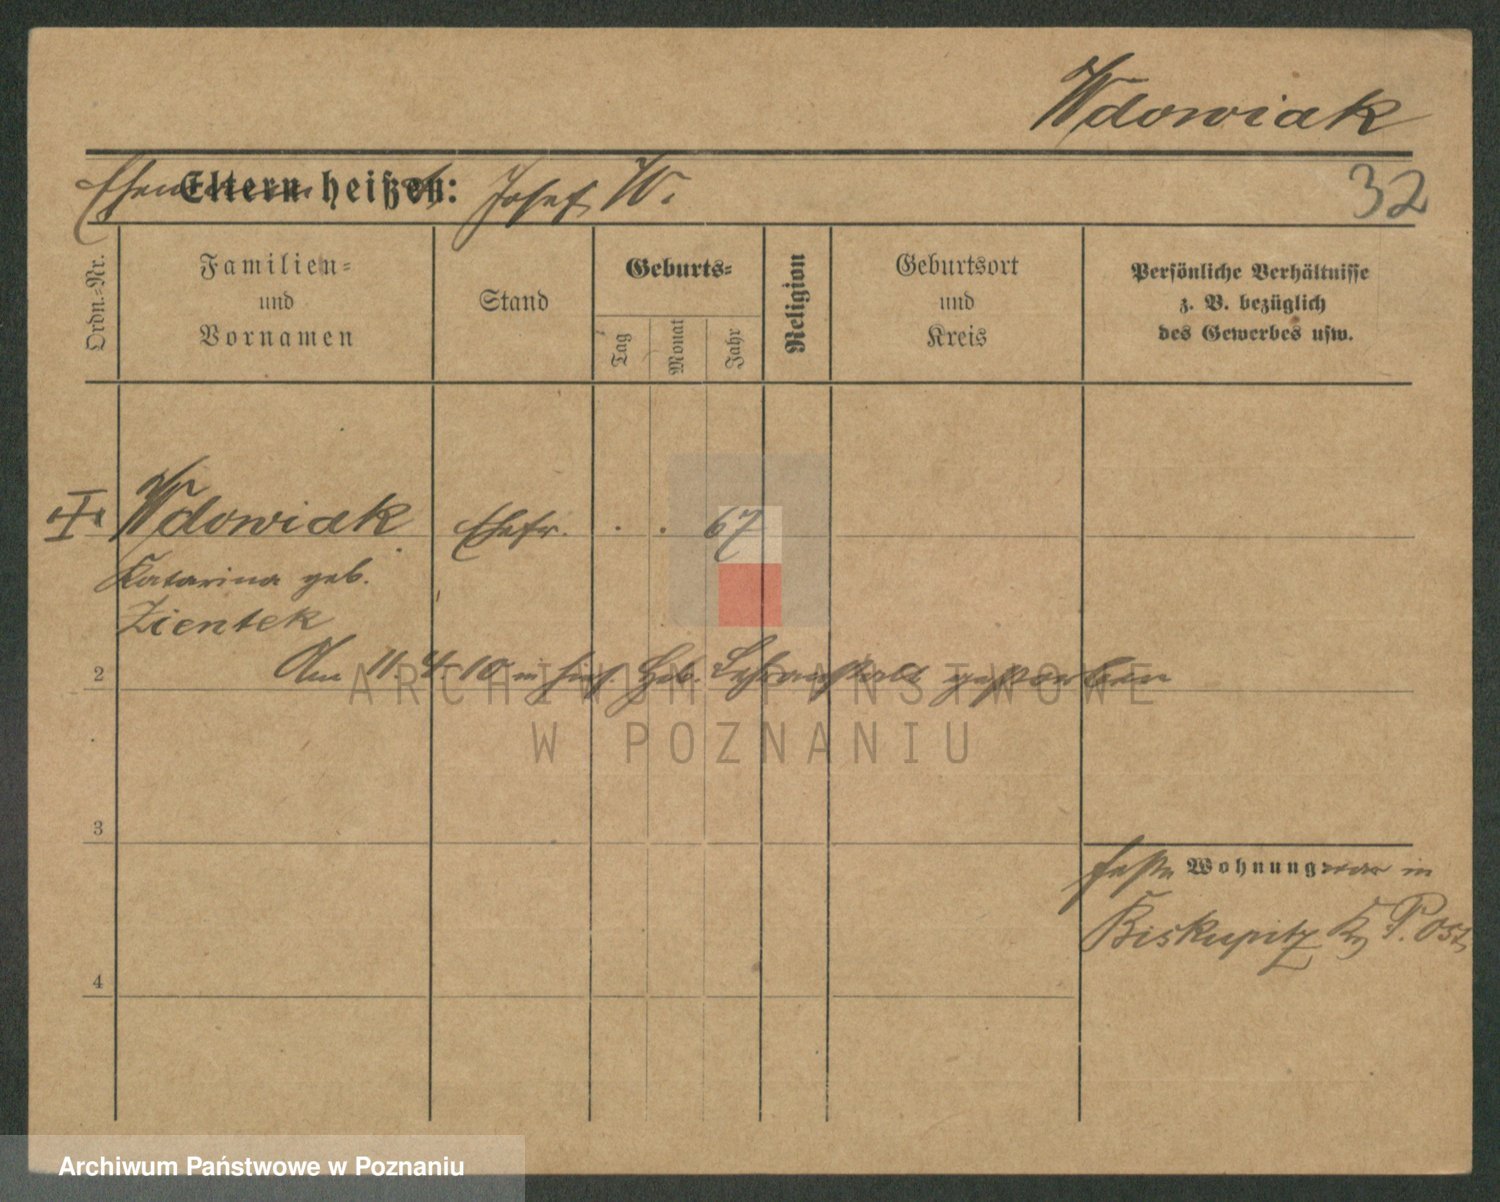 Wdowiak
Eltern heißen: Josef W.
32
Ordn.-Nr.
Familien-
und
Vornamen
Stand
Geburts-
Tag
Monat
Jahr
Religion
Geburtsort
und
Kreis
Persönliche Verhältnisse
z. B. bezüglich
des Gewerbes usw.
Wdowiak Ehefr. . . 67
Katarina geb.
Zientek
Am 11.4.10 in hies. Heb. Lehranstalt gestorben
2
ARCHIWUM PAŃSTWOWE
W POZNANIU
3
feste Wohnung war in
Biskupitz P. Ost
4
Archiwum Państwowe w Poznaniu